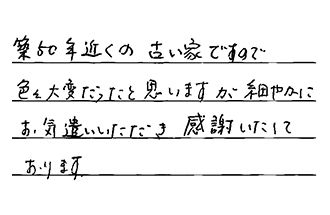 築50年近くの 古い家ですので
色々大変だったと思いますが 細やかに
お気遣いいただき 感謝いたして
おります